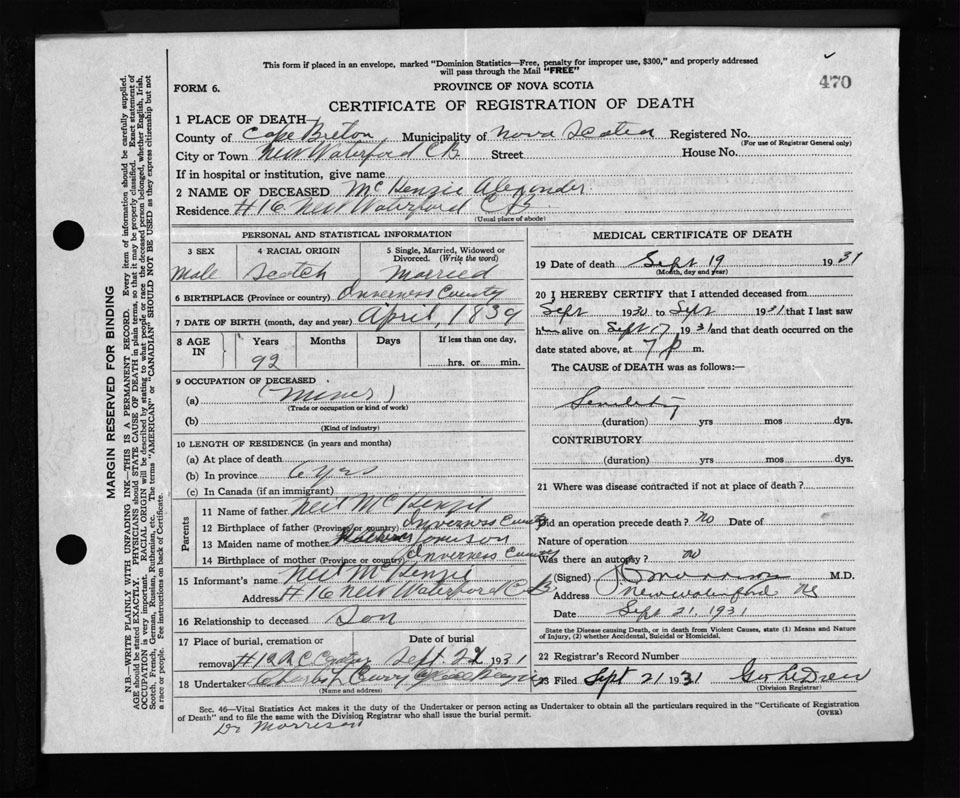 This form if placed in an envelope, marked "Dominion Statistics—Free, penalty for improper use, $300," and properly addressed
will pass through the Mail "FREE"
470
FORM 6.
PROVINCE OF NOVA SCOTIA
CERTIFICATE OF REGISTRATION OF DEATH
1 PLACE OF DEATH—
County of Cape Breton Municipality of Nova Scotia Registered No.
(For use of Registrar General only)
City or Town New Waterford C B. Street House No.
If in hospital or institution, give name
2 NAME OF DECEASED McKenzie Alexander
Residence #16 New Waterford C B.
(Usual place of abode)
PERSONAL AND STATISTICAL INFORMATION
3 SEX 4 RACIAL ORIGIN 5 Single, Married, Widowed or
Divorced. (Write the word)
Male Scotch Married
6 BIRTHPLACE (Province or country) Inverness County
7 DATE OF BIRTH (month, day and year) April, 1839
8 AGE IN Years Months Days If less than one day,
92 hrs. or min.
9 OCCUPATION OF DECEASED
(a) (Miner)
(Trade or occupation or kind of work)
(b)
(Kind of industry)
10 LENGTH OF RESIDENCE (in years and months)
(a) At place of death
(b) In province 6 yrs
(c) In Canada (if an immigrant)
Parents
11 Name of father Neil McKenzie
12 Birthplace of father (Province or country) Inverness County
13 Maiden name of mother
14 Birthplace of mother (Province or country) Inverness County
15 Informant's name Neil McKenzie
Address #16 New Waterford C.B.
16 Relationship to deceased Son
17 Place of burial, cremation or Date of burial
removal Sept. 22 1931
18 Undertaker Charles Curry
(Name and address)
MEDICAL CERTIFICATE OF DEATH
19 Date of death Sept 19 1931
(Month, day and year)
20 I HEREBY CERTIFY that I attended deceased from
Sept 1930 to Sept 1931 that I last saw
him alive on Sept 17 1931 and that death occurred on
date stated above, at 7 p m.
The CAUSE of DEATH was as follows:—
Senility
(duration) yrs mos dys.
CONTRIBUTORY
(duration) yrs mos dys.
21 Where was disease contracted if not at place of death?
Did an operation precede death? no Date of
Nature of operation
Was there an autopsy? no
(Signed) Morrison M.D.
Address New Waterford NS
Date Sept 21, 1931
State the Disease causing Death, or in death from Violent Causes, state (1) Means and Nature
of Injury, (2) whether Accidental, Suicidal or Homicidal.
22 Registrar's Record Number
23 Filed Sept 21 1931 Geo LeDrew
(Division Registrar)
Sec. 46—Vital Statistics Act makes it the duty of the Undertaker or person acting as Undertaker to obtain all the particulars required in the "Certificate of Registration
of Death" and to file the same with the Division Registrar who shall issue the burial permit.
(OVER)
Dr Morrison
MARGIN RESERVED FOR BINDING
N.B.—WRITE PLAINLY WITH UNFADING INK—THIS IS A PERMANENT RECORD. Every item of information should be carefully supplied.
AGE should be stated EXACTLY. PHYSICIANS should STATE CAUSE OF DEATH in plain terms, so that it may be properly classified. Exact statement of
OCCUPATION is very important. RACIAL ORIGIN will be described by stating to what people or race the deceased person belonged, whether English, Irish,
Scotch, French, German, Russian, Ruthenian, etc. The terms "AMERICAN" or "CANADIAN" SHOULD NOT BE USED as they express citizenship but not
a race or people. Fee instructions on back of Certificate.